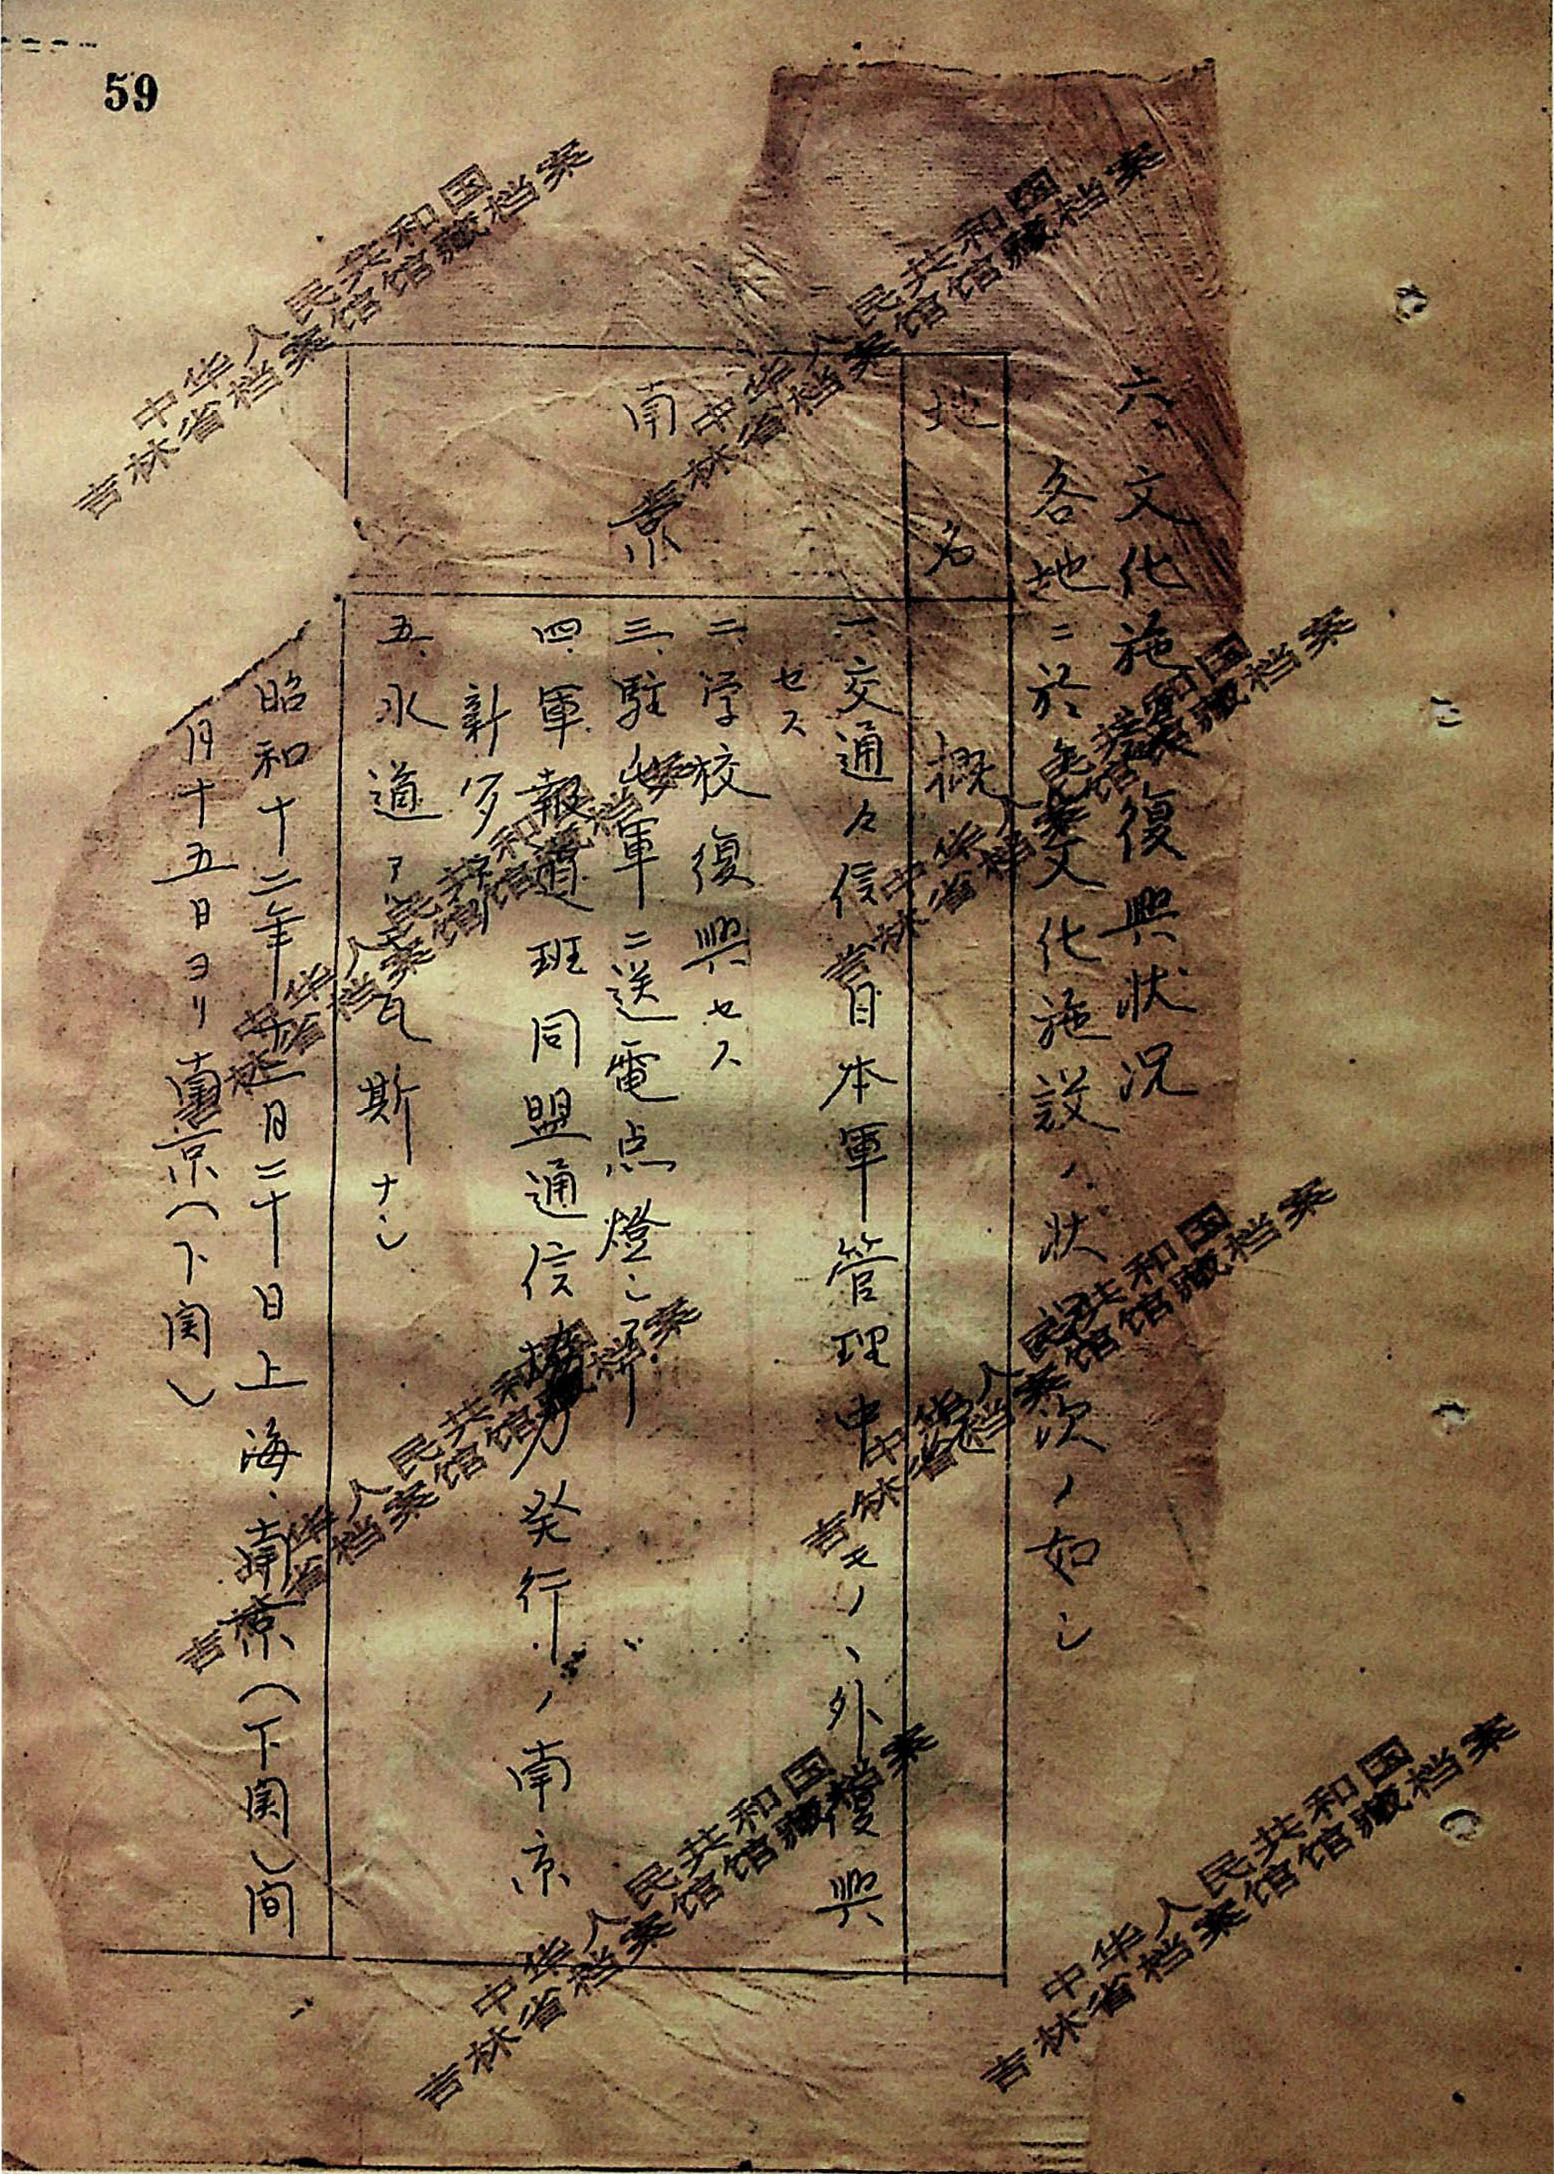 59
六、文化施設復興狀況
各地ニ於ケル文化施設ノ狀況次ノ如シ
地名
概
南京
一、交通々信ハ日本軍管理中ノモノヽ外復興
セス
二、学校復興セス
三、駐屯軍ニ送電点燈シアリ
四、軍報道班同盟通信協力発行ノ南京
新
五、水道アルモ瓦斯ナシ
昭和十二年十二月二十日上海、南京(下関)間
月十五日ヨリ南京(下関)
中华人民共和国
吉林省档案馆馆藏档案
中华人民共和国
吉林省档案馆馆藏档案
中华人民共和国
吉林省档案馆馆藏档案
中华人民共和国
吉林省档案馆馆藏档案
中华人民共和国
吉林省档案馆馆藏档案
中华人民共和国
吉林省档案馆馆藏档案
中华人民共和国
吉林省档案馆馆藏档案
中华人民共和国
吉林省档案馆馆藏档案